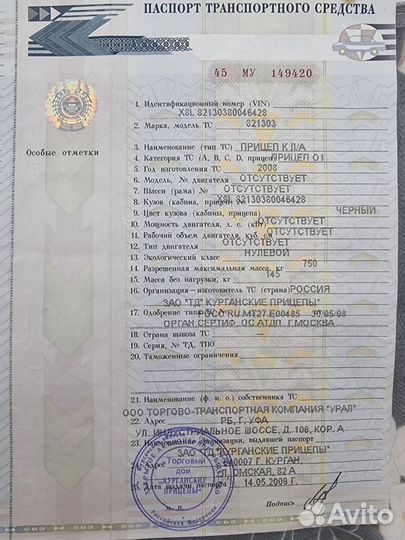 ПАСПОРТ ТРАНСПОРТНОГО СРЕДСТВА
45 МУ 149420
Особые отметки
1. Идентификационный номер (VIN) X8L 82130380046428
2. Марка, модель ТС 821303
3. Наименование (тип ТС) ПРИЦЕП К Л/А
4. Категория ТС (A, B, C, D, прицеп) ПРИЦЕП О1
5. Год изготовления ТС 2008
6. Модель, № двигателя ОТСУТСТВУЕТ
7. Шасси (рама) № ОТСУТСТВУЕТ
8. Кузов (кабина, прицеп) № X8L 82130380046428
9. Цвет кузова (кабины, прицепа) ЧЕРНЫЙ
10. Мощность двигателя, л. с. (кВт) ОТСУТСТВУЕТ
11. Рабочий объем двигателя, куб. см ОТСУТСТВУЕТ
12. Тип двигателя ОТСУТСТВУЕТ
13. Экологический класс НУЛЕВОЙ
14. Разрешенная максимальная масса, кг 750
15. Масса без нагрузки, кг 145
16. Организация—изготовитель ТС (страна) РОССИЯ
ЗАО "ТД" КУРГАНСКИЕ ПРИЦЕПЫ"
17. Одобрение типа ТС № РОСС RU.MT27.E00485 30/05/08
ОРГАН СЕРТИФ. ОС АТДП Г.МОСКВА
18. Страна вывоза ТС –
19. Серия, № ТД, ТПО
20. Таможенные ограничения
21. Наименование (ф. и. о.) собственника ТС
ООО ТОРГОВО-ТРАНСПОРТНАЯ КОМПАНИЯ "УРАЛ"
22. Адрес РБ, Г. УФА
УЛ. ИНДУСТРИАЛЬНОЕ ШОССЕ, Д. 106, КОР. А
23. Наименование организации, выдавшей паспорт
"ТД "КУРГАНСКИЕ ПРИЦЕПЫ"
24. Адрес 640007 Г. КУРГАН,
ОМСКАЯ, 82 А
25. Дата выдачи паспорта 14.05.2009 Г.
Торговый
дом
"КУРГАНСКИЕ
ПРИЦЕПЫ"
Российская Федерация
М. П.
Подпись
Avito